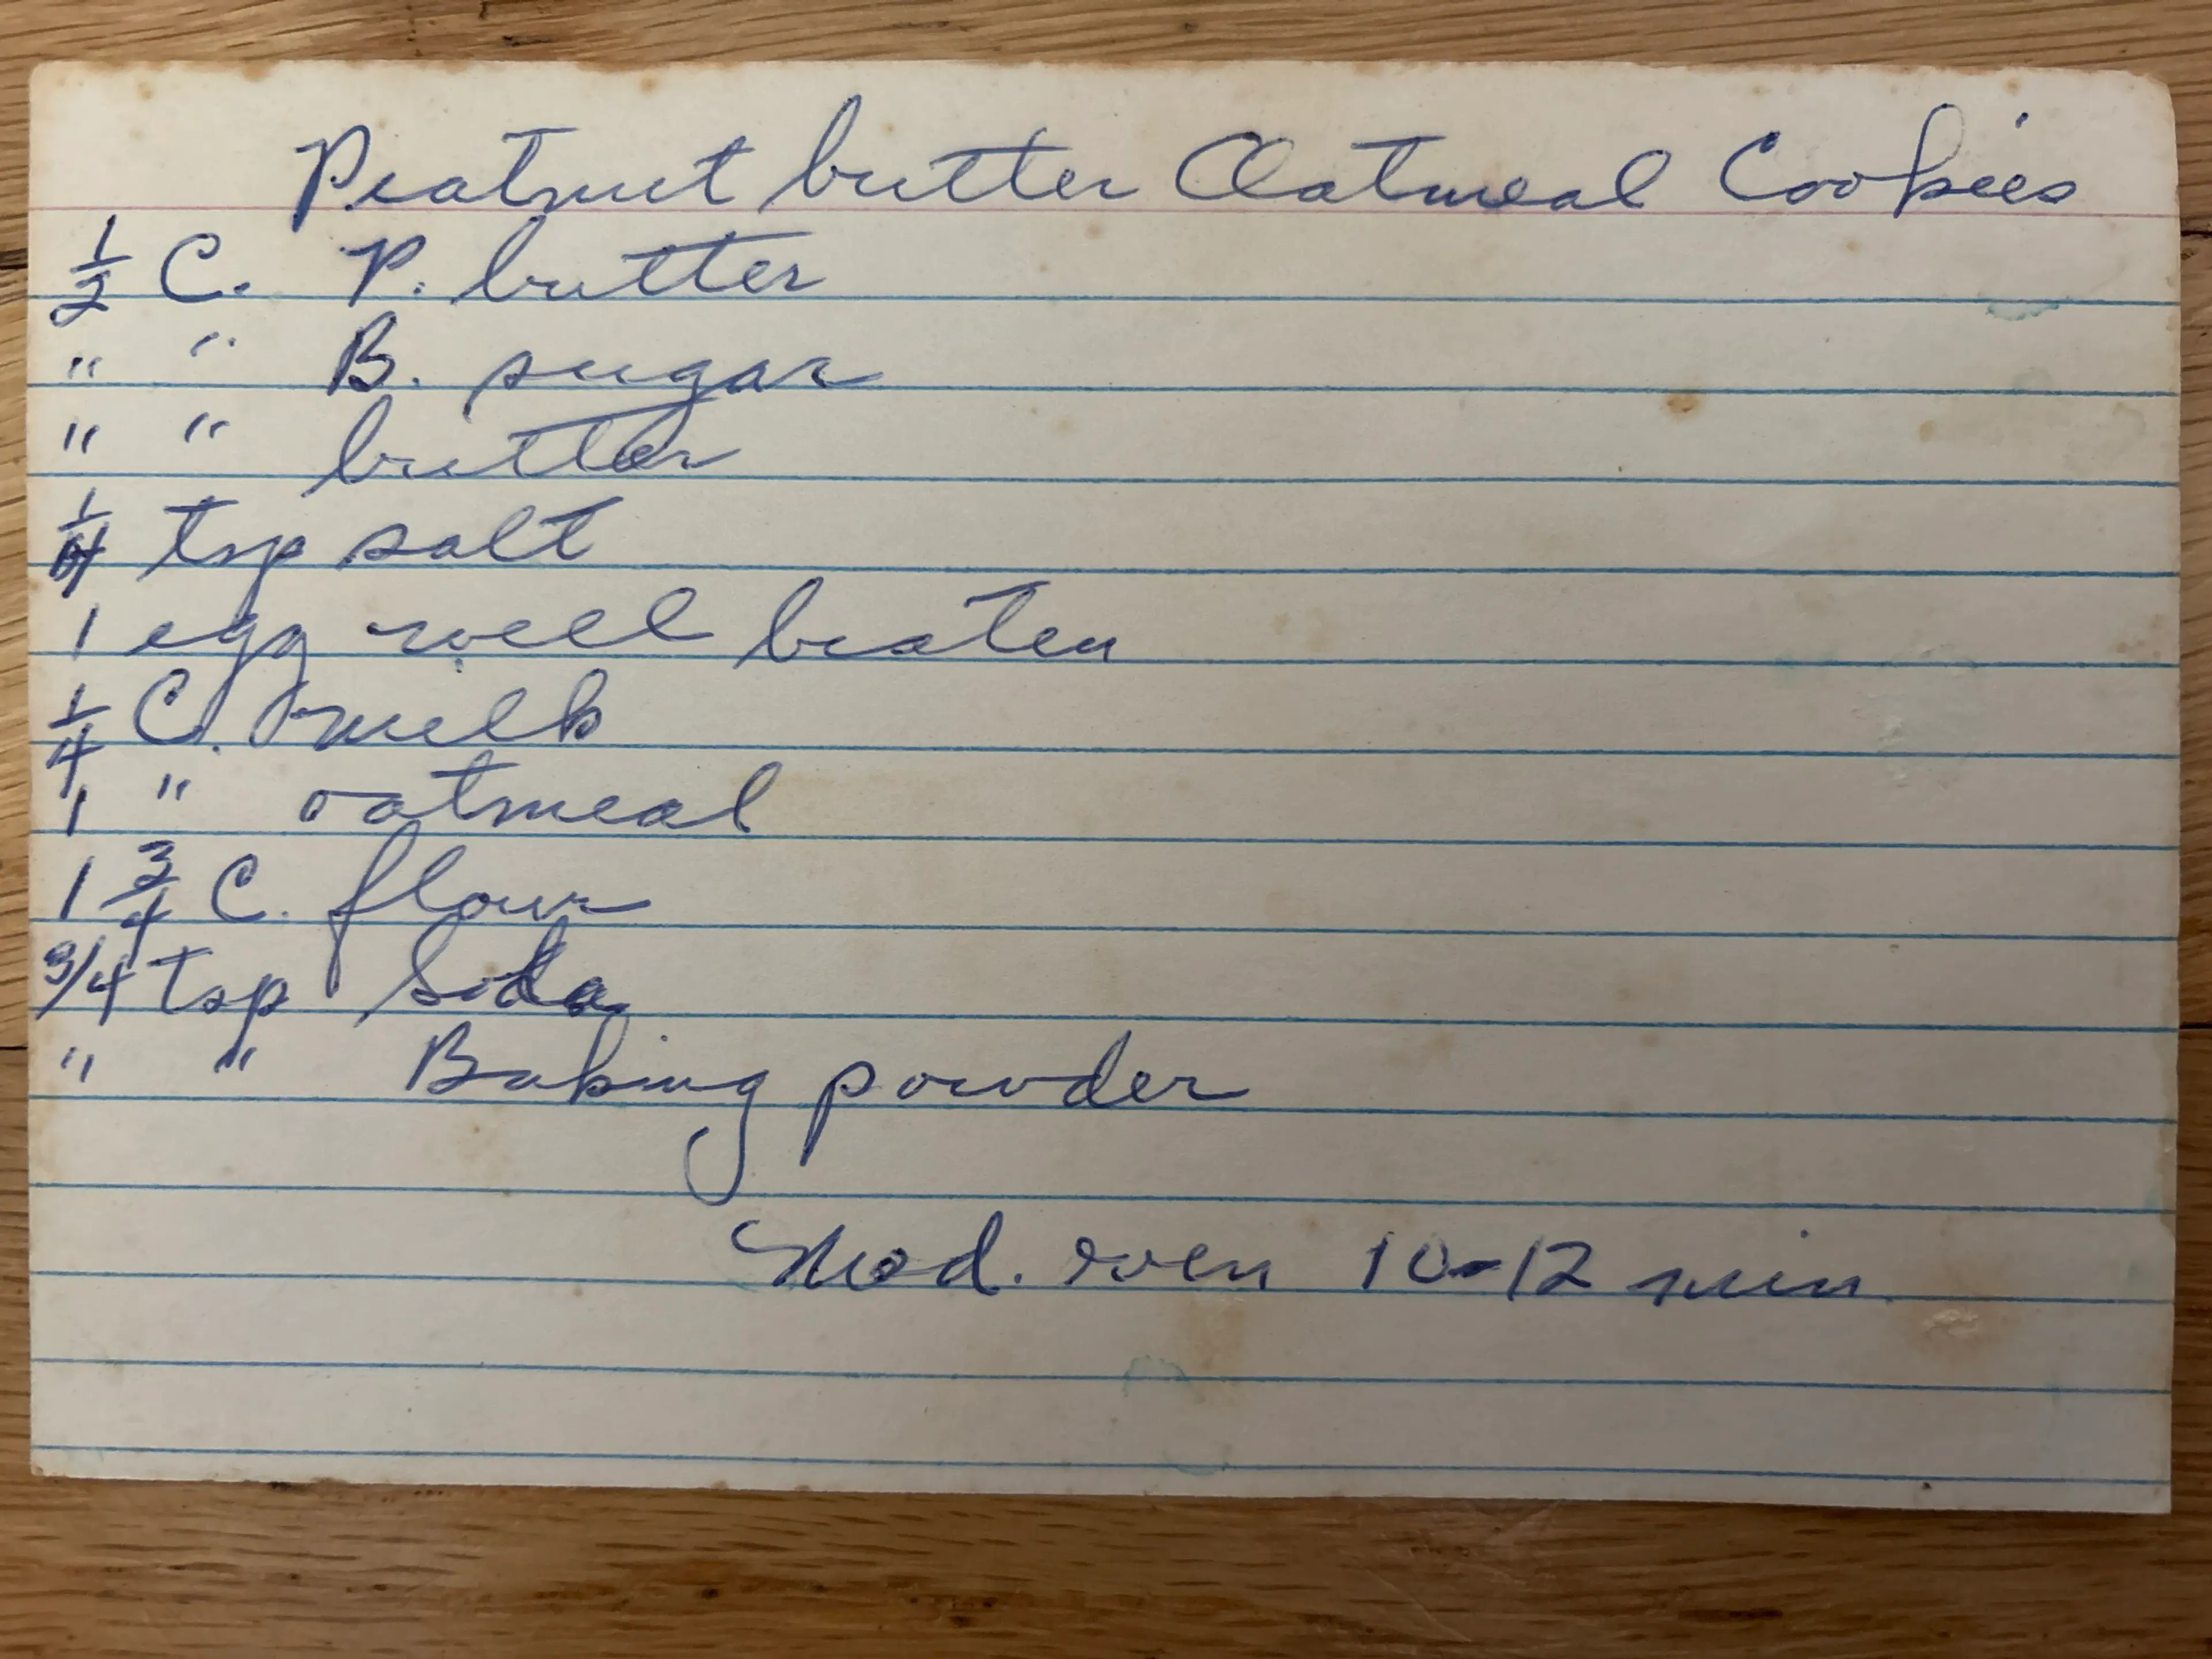 Peatnut butter Oatmeal Cookies
1/2 C. P. butter
" " B. sugar
" " butter
1/4 tsp salt
1 egg well beaten
1/4 C. milk
1 " oatmeal
1 3/4 C. flour
3/4 tsp Soda
" " Baking powder
Mod. oven 10-12 min.